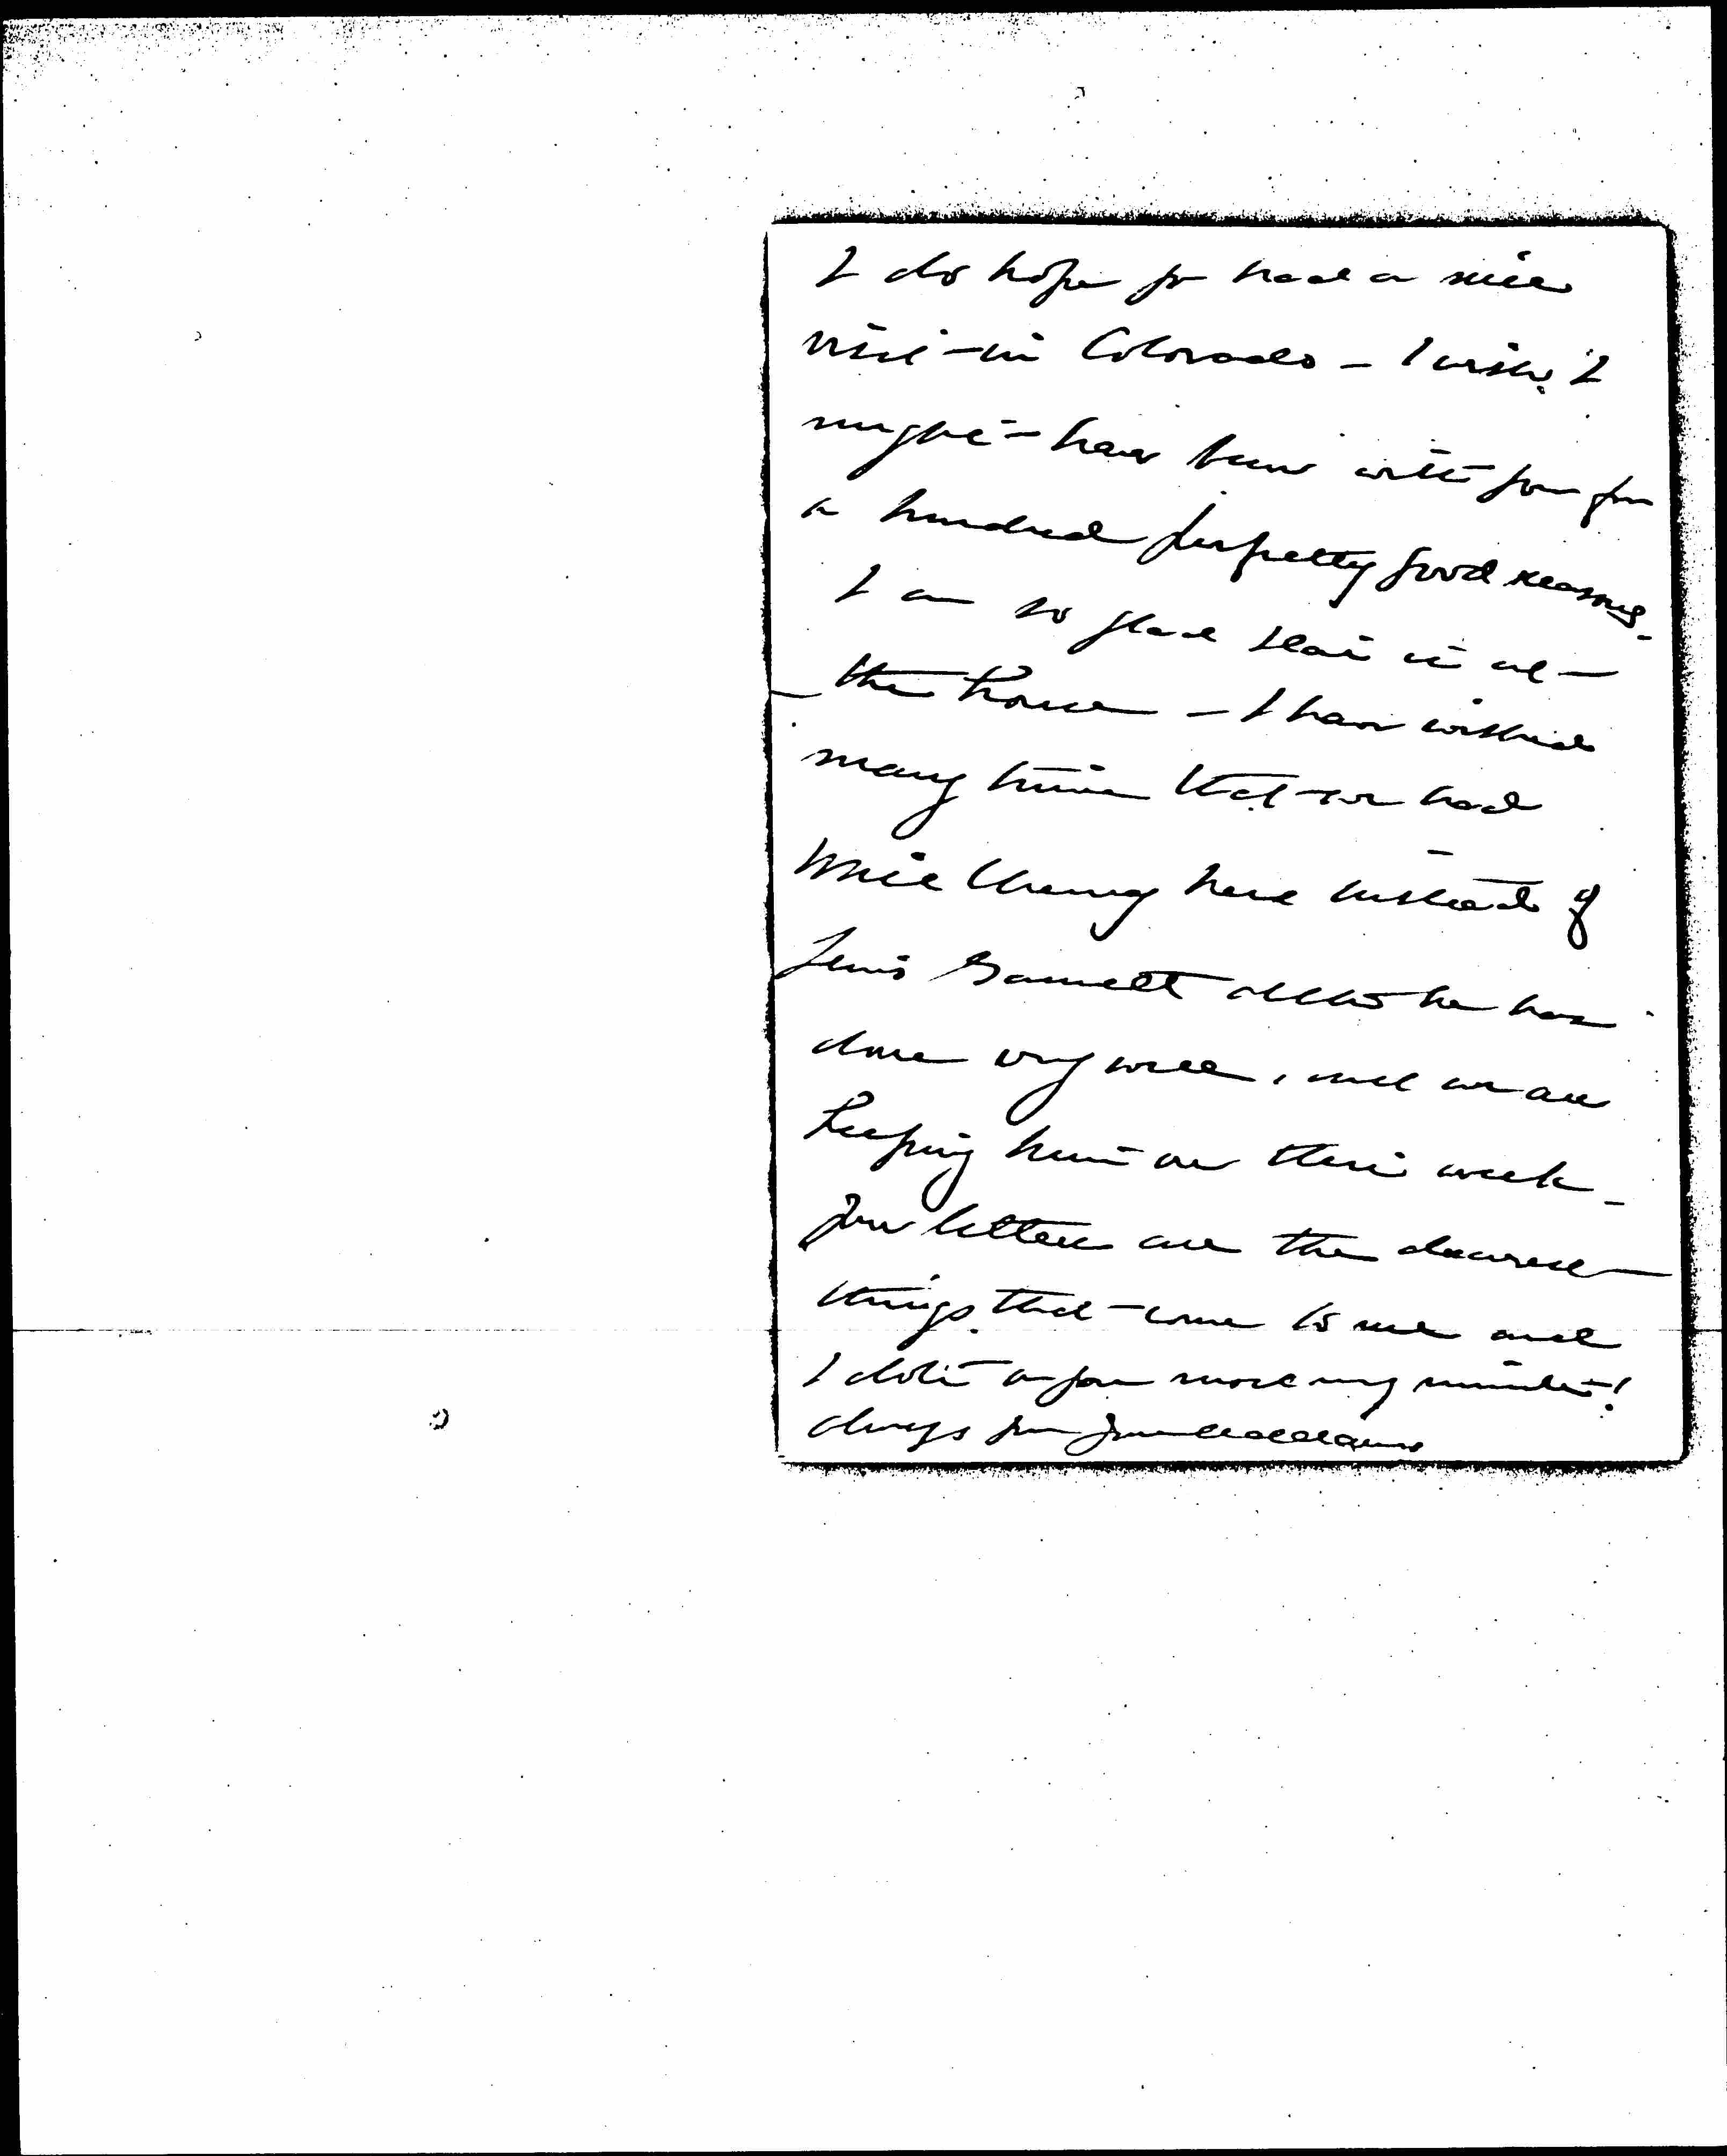 I do hope you had a nice
visit in Colorado - I wish I
might - have been with you for
a hundred perfectly good reasons.
I am so glad is at
the house - I have wished
many times that we had
here instead of
Garnett altho he has
done very well, and we are
keeping him on this week -
your letters are the dearest
things that come to me and
I dote on you more every minute!
always your